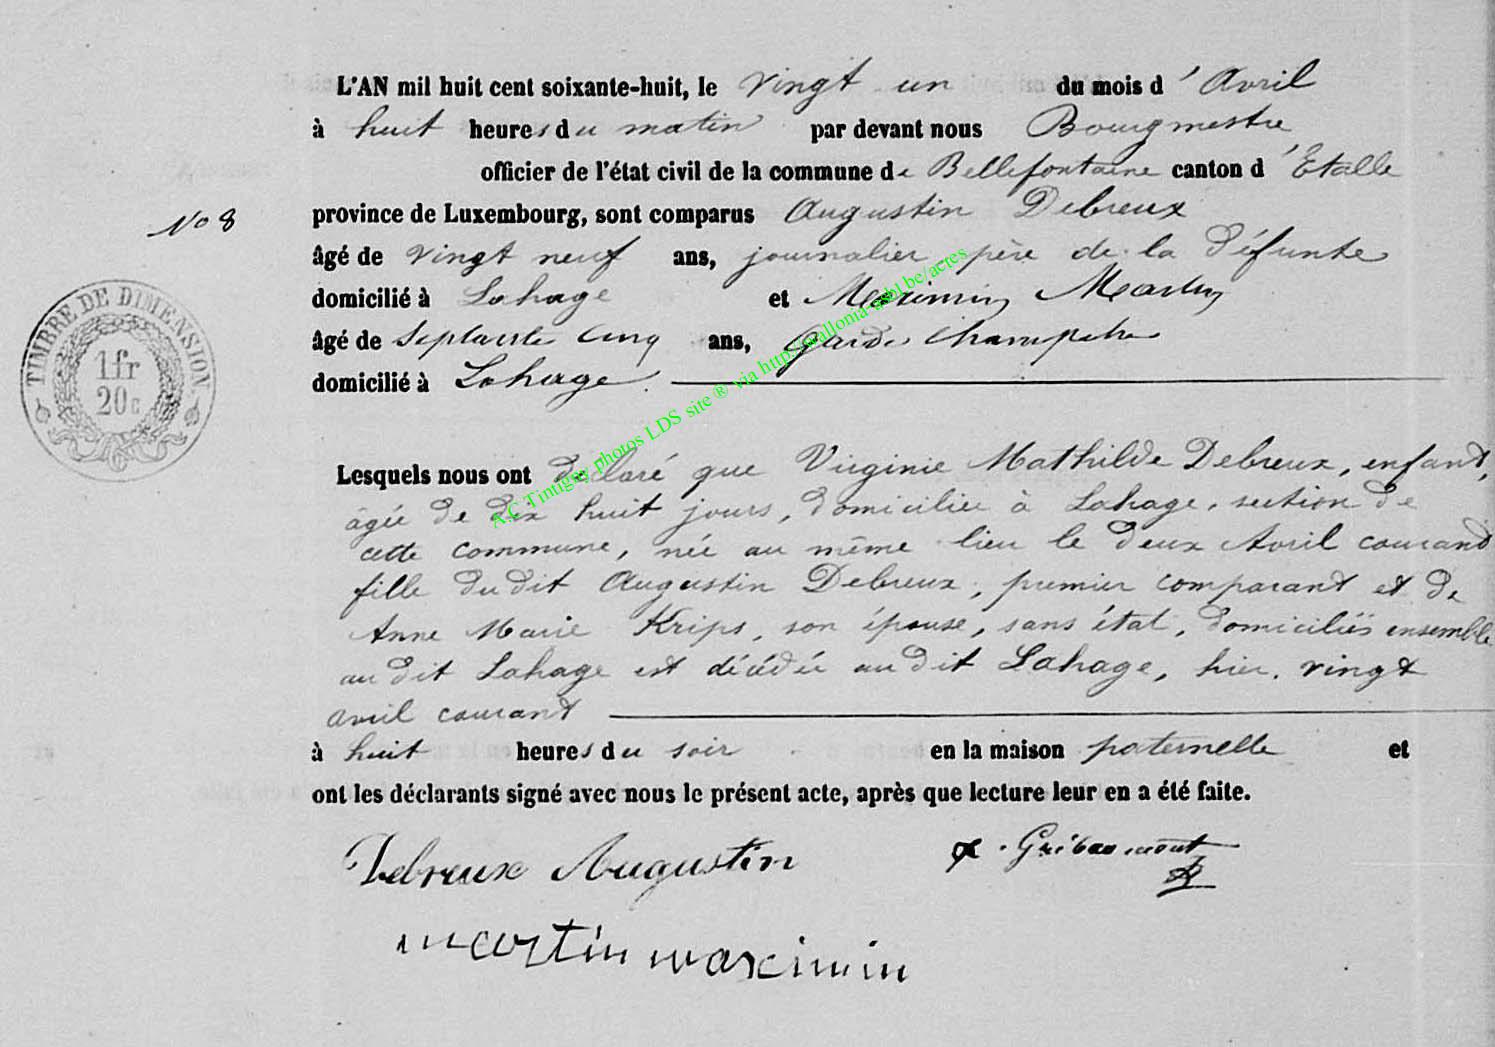 L'AN mil huit cent soixante-huit, le vingt un du mois d'Avril
à huit heures du matin par devant nous Bourgmestre
officier de l'état civil de la commune de Bellefontaine canton d'Etalle
No 8
province de Luxembourg, sont comparus Augustin Debreux
âgé de vingt neuf ans, journalier père de la défunte
domicilié à Lahage et Maximin Martin
âgé de septante cinq ans, garde Champetre
domicilié à Lahage.
TIMBRE DE DIMENSION
1 fr
20 c
Lesquels nous ont déclaré que Virginie Mathilde Debreux, enfant,
âgée de dix huit jours, domiciliée à Lahage, section de
cette commune, née au même lieu le deux Avril courant
fille du dit Augustin Debreux, premier comparant et de
Anne Marie Krips, son épouse, sans état, domiciliés ensemble
au dit Lahage est décédée au dit Lahage, hier, vingt
avril courant
à huit heures du soir en la maison paternelle et
ont les déclarants signé avec nous le présent acte, après que lecture leur en a été faite.
Debreux Augustin
Gribaumont
martin maximin
A.C Tintigny photos LDS site ® via http://wallonia-asbl.be/actes